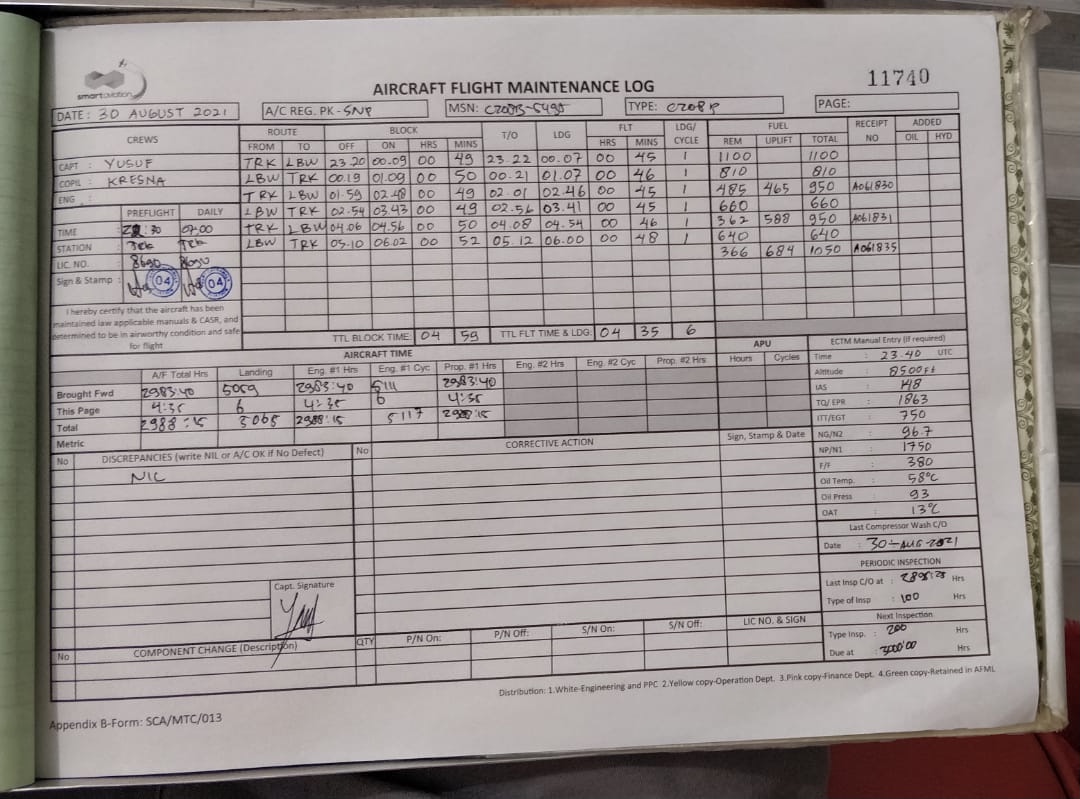 smartaviation
AIRCRAFT FLIGHT MAINTENANCE LOG
11740
DATE : 30 AUGUST 2021 A/C REG. PK - SNP MSN: C208B-5495 TYPE: C208B PAGE:
CREWS ROUTE BLOCK T/O LDG FLT LDG/ CYCLE FUEL RECEIPT NO ADDED
FROM TO OFF ON HRS MINS HRS MINS REM UPLIFT TOTAL OIL HYD
CAPT : YUSUF TRK LBW 23.20 00.09 00 49 23.22 00.07 00 45 1 1100 1100
COPIL : KRESNA LBW TRK 00.19 01.09 00 50 00.21 01.07 00 46 1 810 810
ENG : TRK LBW 01.59 02.48 00 49 02.01 02.46 00 45 1 485 465 950 A061830
PREFLIGHT DAILY LBW TRK 02.54 03.43 00 49 02.56 03.41 00 45 1 660 660
TIME : :30 07.00 TRK LBW 04.06 04.56 00 50 04.08 04.54 00 46 1 362 588 950 A061831
STATION : Trk Trk LBW TRK 05.10 06.02 00 52 05.12 06.00 00 48 1 640 640
366 684 1050 A061835
LIC. NO. : 8690 8690
Sign & Stamp : 04 04
I hereby certify that the aircraft has been
maintained law applicable manuals & CASR, and
determined to be in airworthy condition and safe
for flight
TTL BLOCK TIME: 04 59 TTL FLT TIME & LDG: 04 35 6
AIRCRAFT TIME APU
A/F Total Hrs Landing Eng. #1 Hrs Eng. #1 Cyc Prop. #1 Hrs Eng. #2 Hrs Eng. #2 Cyc Prop. #2 Hrs Hours Cycles
Brought Fwd 2983:40 5059 2983:40 5111 2983:40
This Page 4:35 6 4:35 6 4:35
Total 2988:15 5065 2988:15 5117 2988:15
Metric
ECTM Manual Entry (If required)
Time : 23.40 UTC
Altitude : 8500 Ft
IAS : 148
TQ/ EPR : 1863
ITT/EGT : 750
NG/N2 : 96.7
NP/N1 : 1750
F/F : 380
Oil Temp. : 58°C
Oil Press : 93
OAT : 13°C
Last Compressor Wash C/O
Date : 30-AUG-2021
PERIODIC INSPECTION
Last Insp C/O at : Hrs
Type of Insp : 100 Hrs
Next Inspection
Type Insp. : 200 Hrs
Due at : 3000:00 Hrs
No DISCREPANCIES (write NIL or A/C OK if No Defect) No CORRECTIVE ACTION Sign, Stamp & Date
NIL
Capt. Signature
No COMPONENT CHANGE (Description) QTY P/N On: P/N Off: S/N On: S/N Off: LIC NO. & SIGN
Distribution: 1.White-Engineering and PPC 2.Yellow copy-Operation Dept. 3.Pink copy-Finance Dept. 4.Green copy-Retained in AFML
Appendix B-Form: SCA/MTC/013